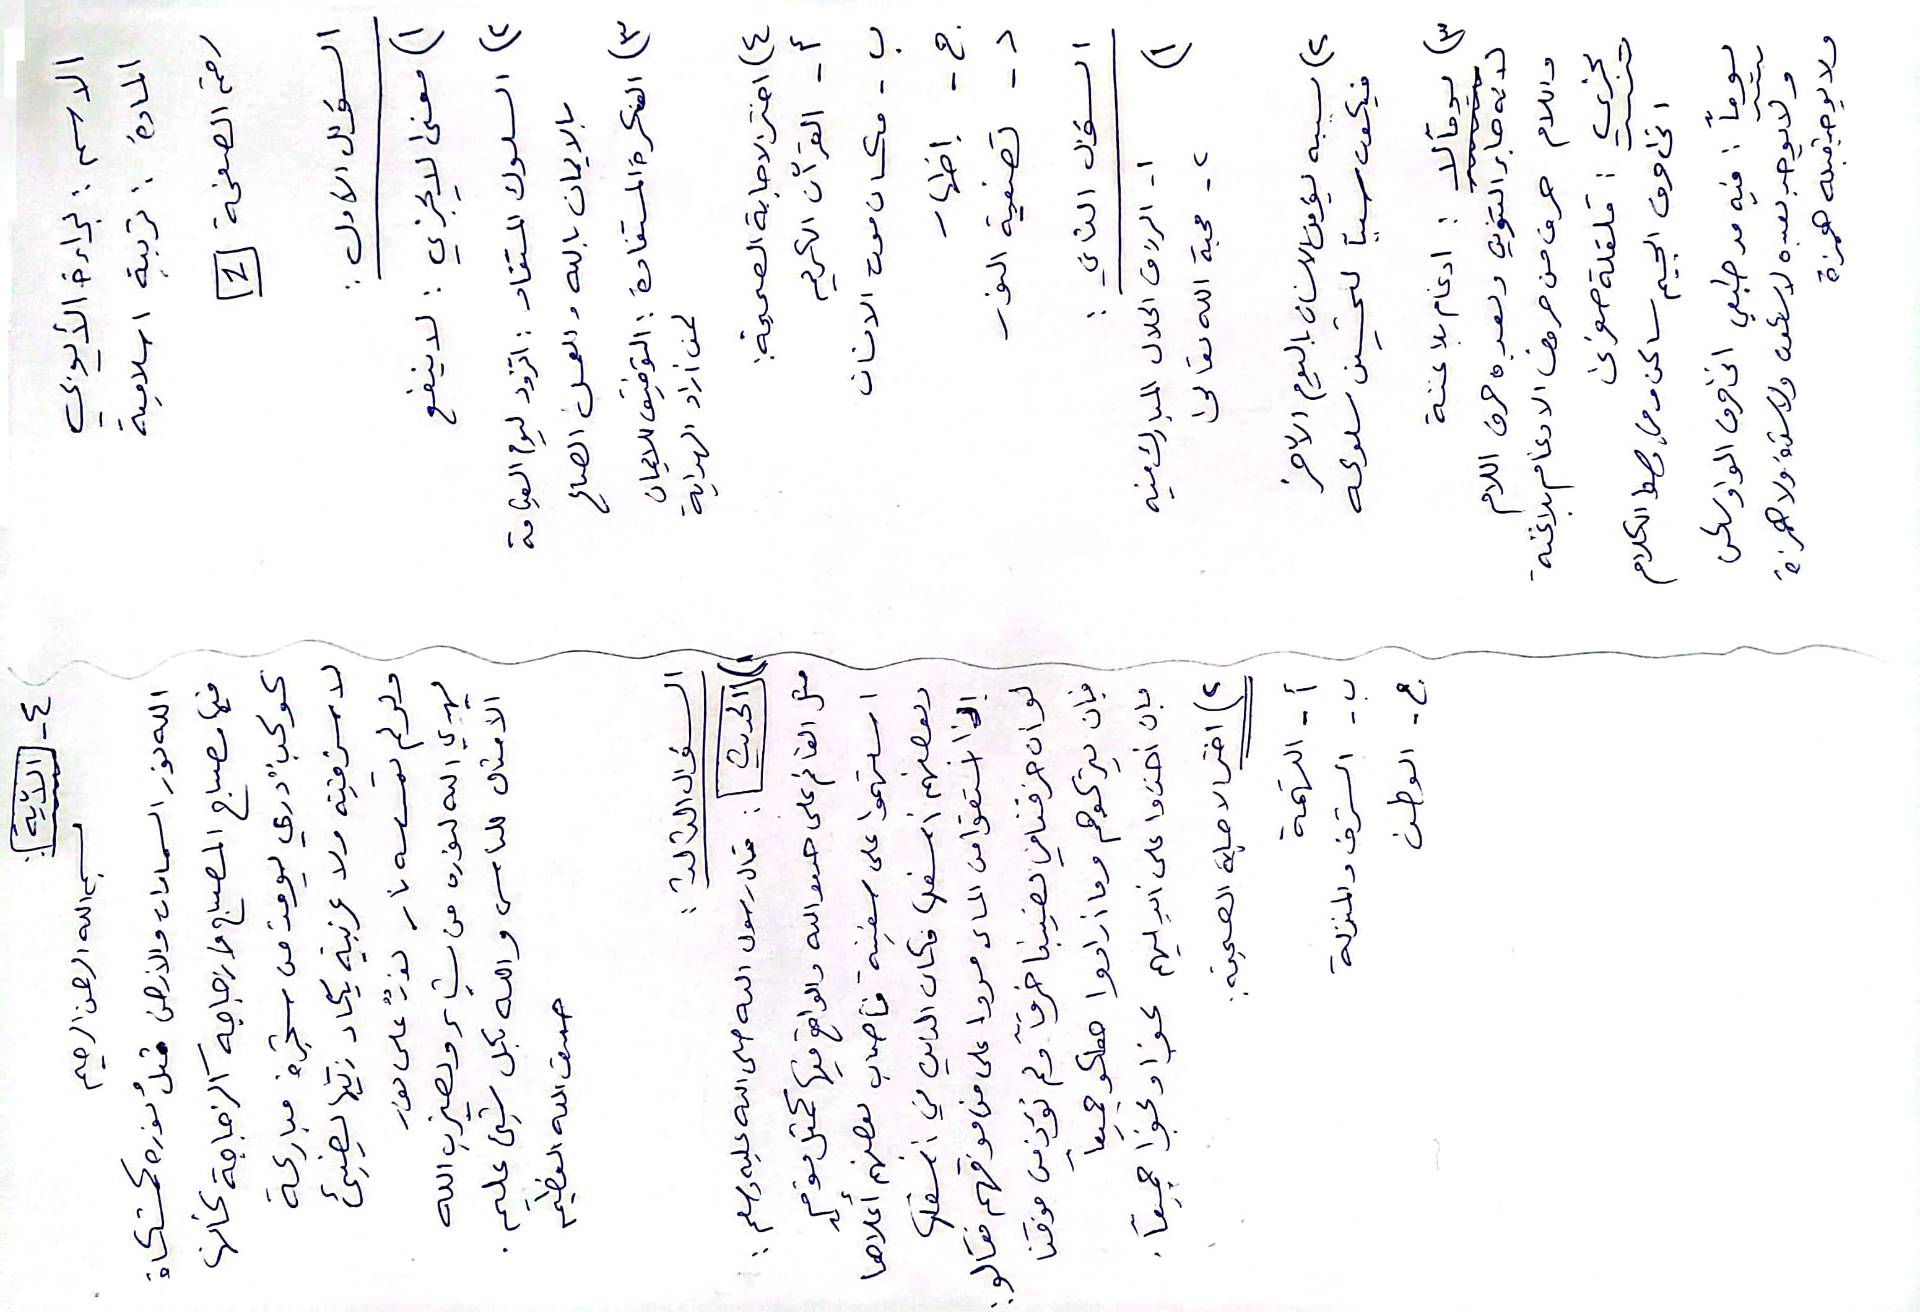 الاسم : براءة الأيوبي
المادة : تربية اسلامية
رقم الصفحة 1
السؤال الاول :
١) معنى لا يجزي : لا ينفع
٢) السلوك المستفاد : التزود ليوم القيامة
بالايمان بالله والعمل الصالح
٣) الفكرة المستفادة : التوفيق للايمان
لمن أراد الهداية
٤) اختر الاجابة الصحيحة :
أ- القرآن الكريم
ب- مكان موت الانسان
ج- إظهار
د- تصفية النور
السؤال الثاني :
١) ١- الرزق الحلال المبارك فيه
٢- محبة الله تعالى
٢) سببه ليؤمن الانسان باليوم الآخر
فيكون سبباً لتحسين سلوكه
٣) يوماً لا : ادغام بلا غنة
لانه جاء التنوين وبعده حرف اللام
واللام حرف من حروف الادغام بلا غنة
يجزي : قلقلة صغرى
اتى حرف الجيم ساكن في وسط الكلام
يوماً : فيه مد طبيعي اتى حرف الواو ساكن
ولا يوجد بعده لا سكون ولا شدة ولا همزة
ولا يوجد قبله همزة
٤- الآية :
بسم الله الرحمن الرحيم
الله نور السماوات والارض مثل نوره كمشكاة
فيها مصباح المصباح في زجاجة الزجاجة كأنها
كوكب دري يوقد من شجرة مباركة
لا شرقية ولا غربية يكاد زيتها يضيئ
ولو لم تمسسه نار نورٌ على نور
يهدي الله لنوره من يشاء ويضرب الله
الامثال للناس والله بكل شيئ عليم .
صدق الله العظيم
السؤال الثالث :
١) الحديث : قال رسول الله صلى الله عليه وسلم :
مثل القائم على حدود الله والواقع فيها كمثل قوم
استهموا على سفينة فأصاب بعضهم أعلاها
وبعضهم أسفلها فكان الذين في أسفلها
إذا استقوا من الماء مروا على من فوقهم فقالوا:
لو أن خرقنا في نصيبنا خرقاً ولم نؤذ من فوقنا
فإن تركوهم وما أرادوا هلكو جميعاً
فإن أخذوا على أيديهم نجوا ونجوا جميعاً .
٢) اختر الاجابة الصحيحة :
أ- التهمة
ب- الشرف والمنزلة
ج- الوطن